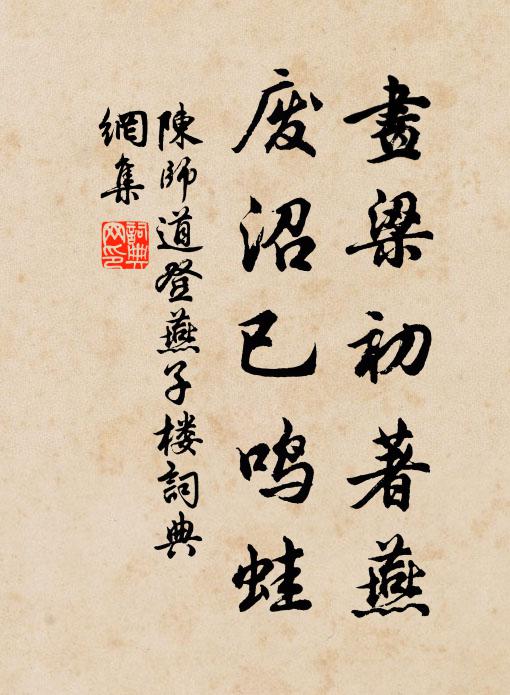 畫梁初著燕
废沼已鸣蛙
陳師道登燕子楼詞典
網集
詞典网印